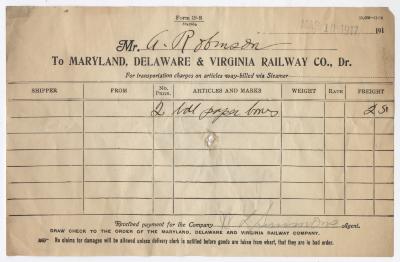 Form 19-B
MAR 10 1917 191
Mr. A. Robinson
To MARYLAND, DELAWARE & VIRGINIA RAILWAY CO., Dr.
For transportation charges on articles way-billed via Steamer
SHIPPER FROM No. Pkgs. ARTICLES AND MARKS WEIGHT RATE FREIGHT
2 bdl paper boxes
Received payment for the Company Agent.
DRAW CHECK TO THE ORDER OF THE MARYLAND, DELAWARE AND VIRGINIA RAILWAY COMPANY.
No claims for damages will be allowed unless delivery clerk is notified before goods are taken from wharf, that they are in bad order.